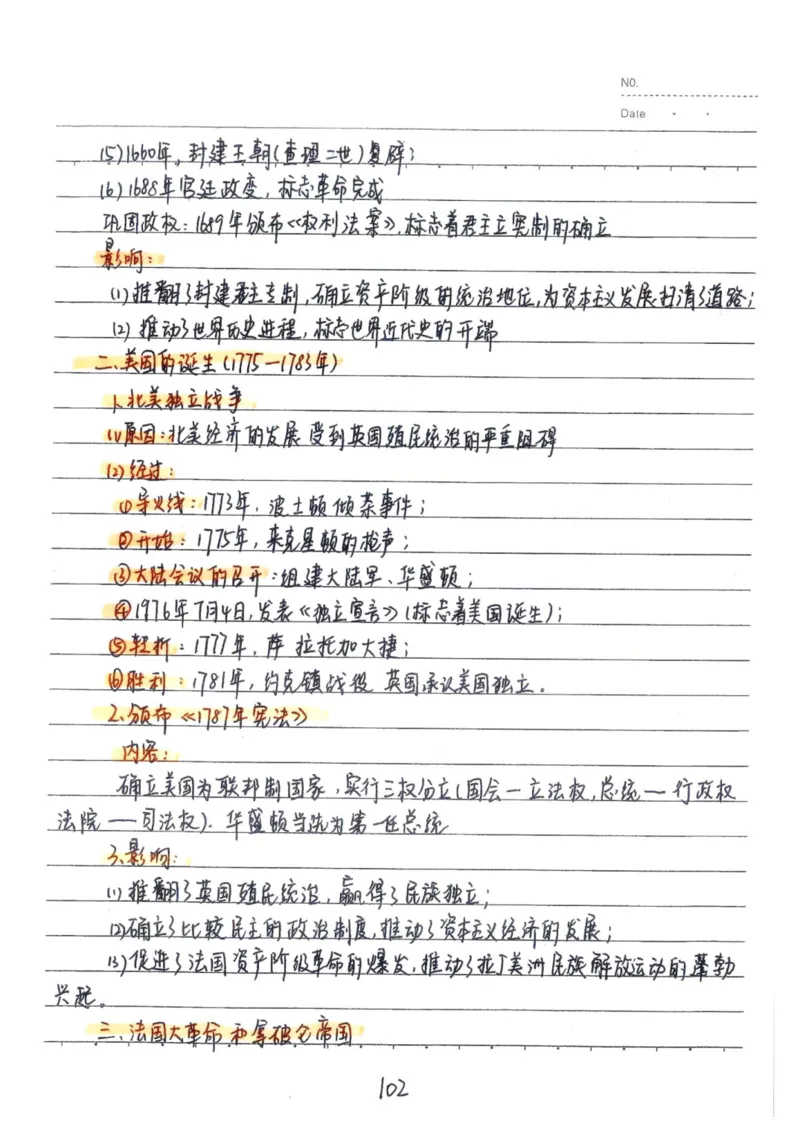 NO.
Date
(5)1660年,封建王朝(查理二世)复辟;
(6)1688年宫廷政变,标志革命完成
巩固政权:1689年颁布《权利法案》,标志着君主立宪制的确立
影响:
(1)推翻了封建君主专制,确立资产阶级的统治地位,为资本主义发展扫清了道路;
(2)推动了世界历史进程,标志世界近代史的开端
二、美国的诞生(1775—1783年)
1、北美独立战争
(1)原因:北美经济的发展 受到英国殖民统治的严重阻碍
(2)经过:
①导火线:1773年,波士顿倾茶事件;
②开始:1775年,来克星顿的枪声;
③大陆会议的召开:组建大陆军、华盛顿;
④1976年7月4日,发表《独立宣言》(标志着美国诞生);
⑤转折:1777年,萨拉托加大捷;
⑥胜利:1781年,约克镇战役 英国承认美国独立。
2、颁布《1787年宪法》
内容:
确立美国为联邦制国家,实行三权分立(国会—立法权,总统—行政权
法院—司法权).华盛顿当选为第一任总统
3、影响:
(1)推翻了英国殖民统治,赢得了民族独立;
(2)确立了比较民主的政治制度,推动了资本主义经济的发展;
(3)促进了法国资产阶级革命的爆发,推动了拉丁美洲民族解放运动的蓬勃
兴起。
三、法国大革命和拿破仑帝国
102